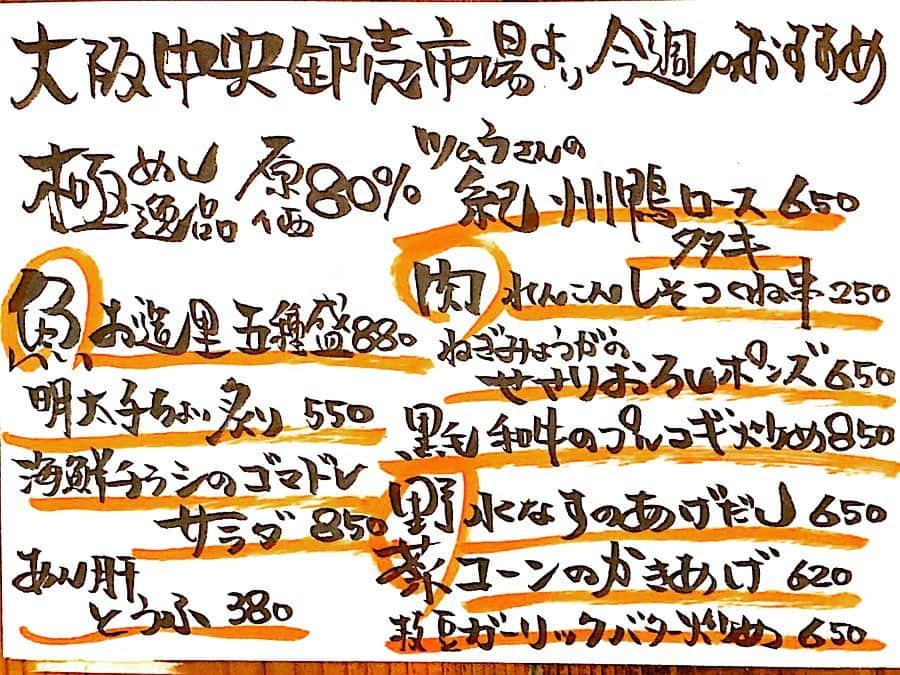 大阪中央卸売市場より今週のおすすめ
極めし逸品 原価80%
魚
お造里五種盛880
明太子ちょい炙り 550
海鮮チラシのゴマドレ
サラダ 850
あん肝
とうふ 380
ツムラさんの
紀州鴨ロース 650
タタキ
肉
れんこんしそつくね串 250
ねぎみょうがの
せせりおろしポンズ 650
黒毛和牛のプルコギ炒め850
野菜
水なすのあげだし 650
コーンのかきあげ 620
枝豆ガーリックバター炒め 650